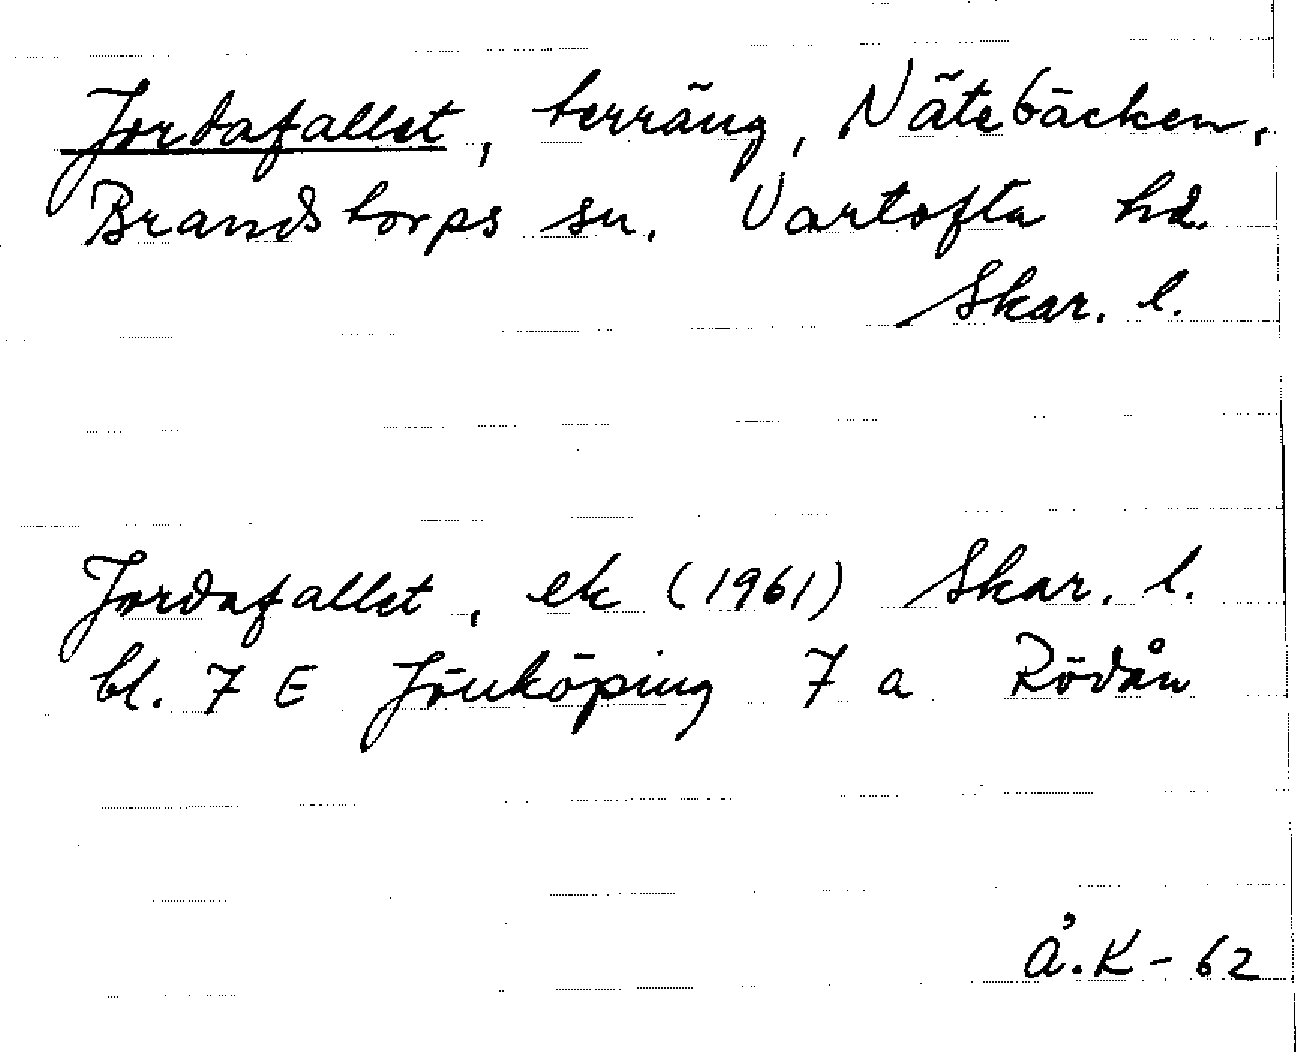 Jordafallet, terräng, Nätebäcken,
Brandstorps sn. Vartofta hd.
Skar. l.
Jordafallet, ek (1961) Skar. l.
bl. 7 E Jönköping 7 a Rödån
Å.K-62